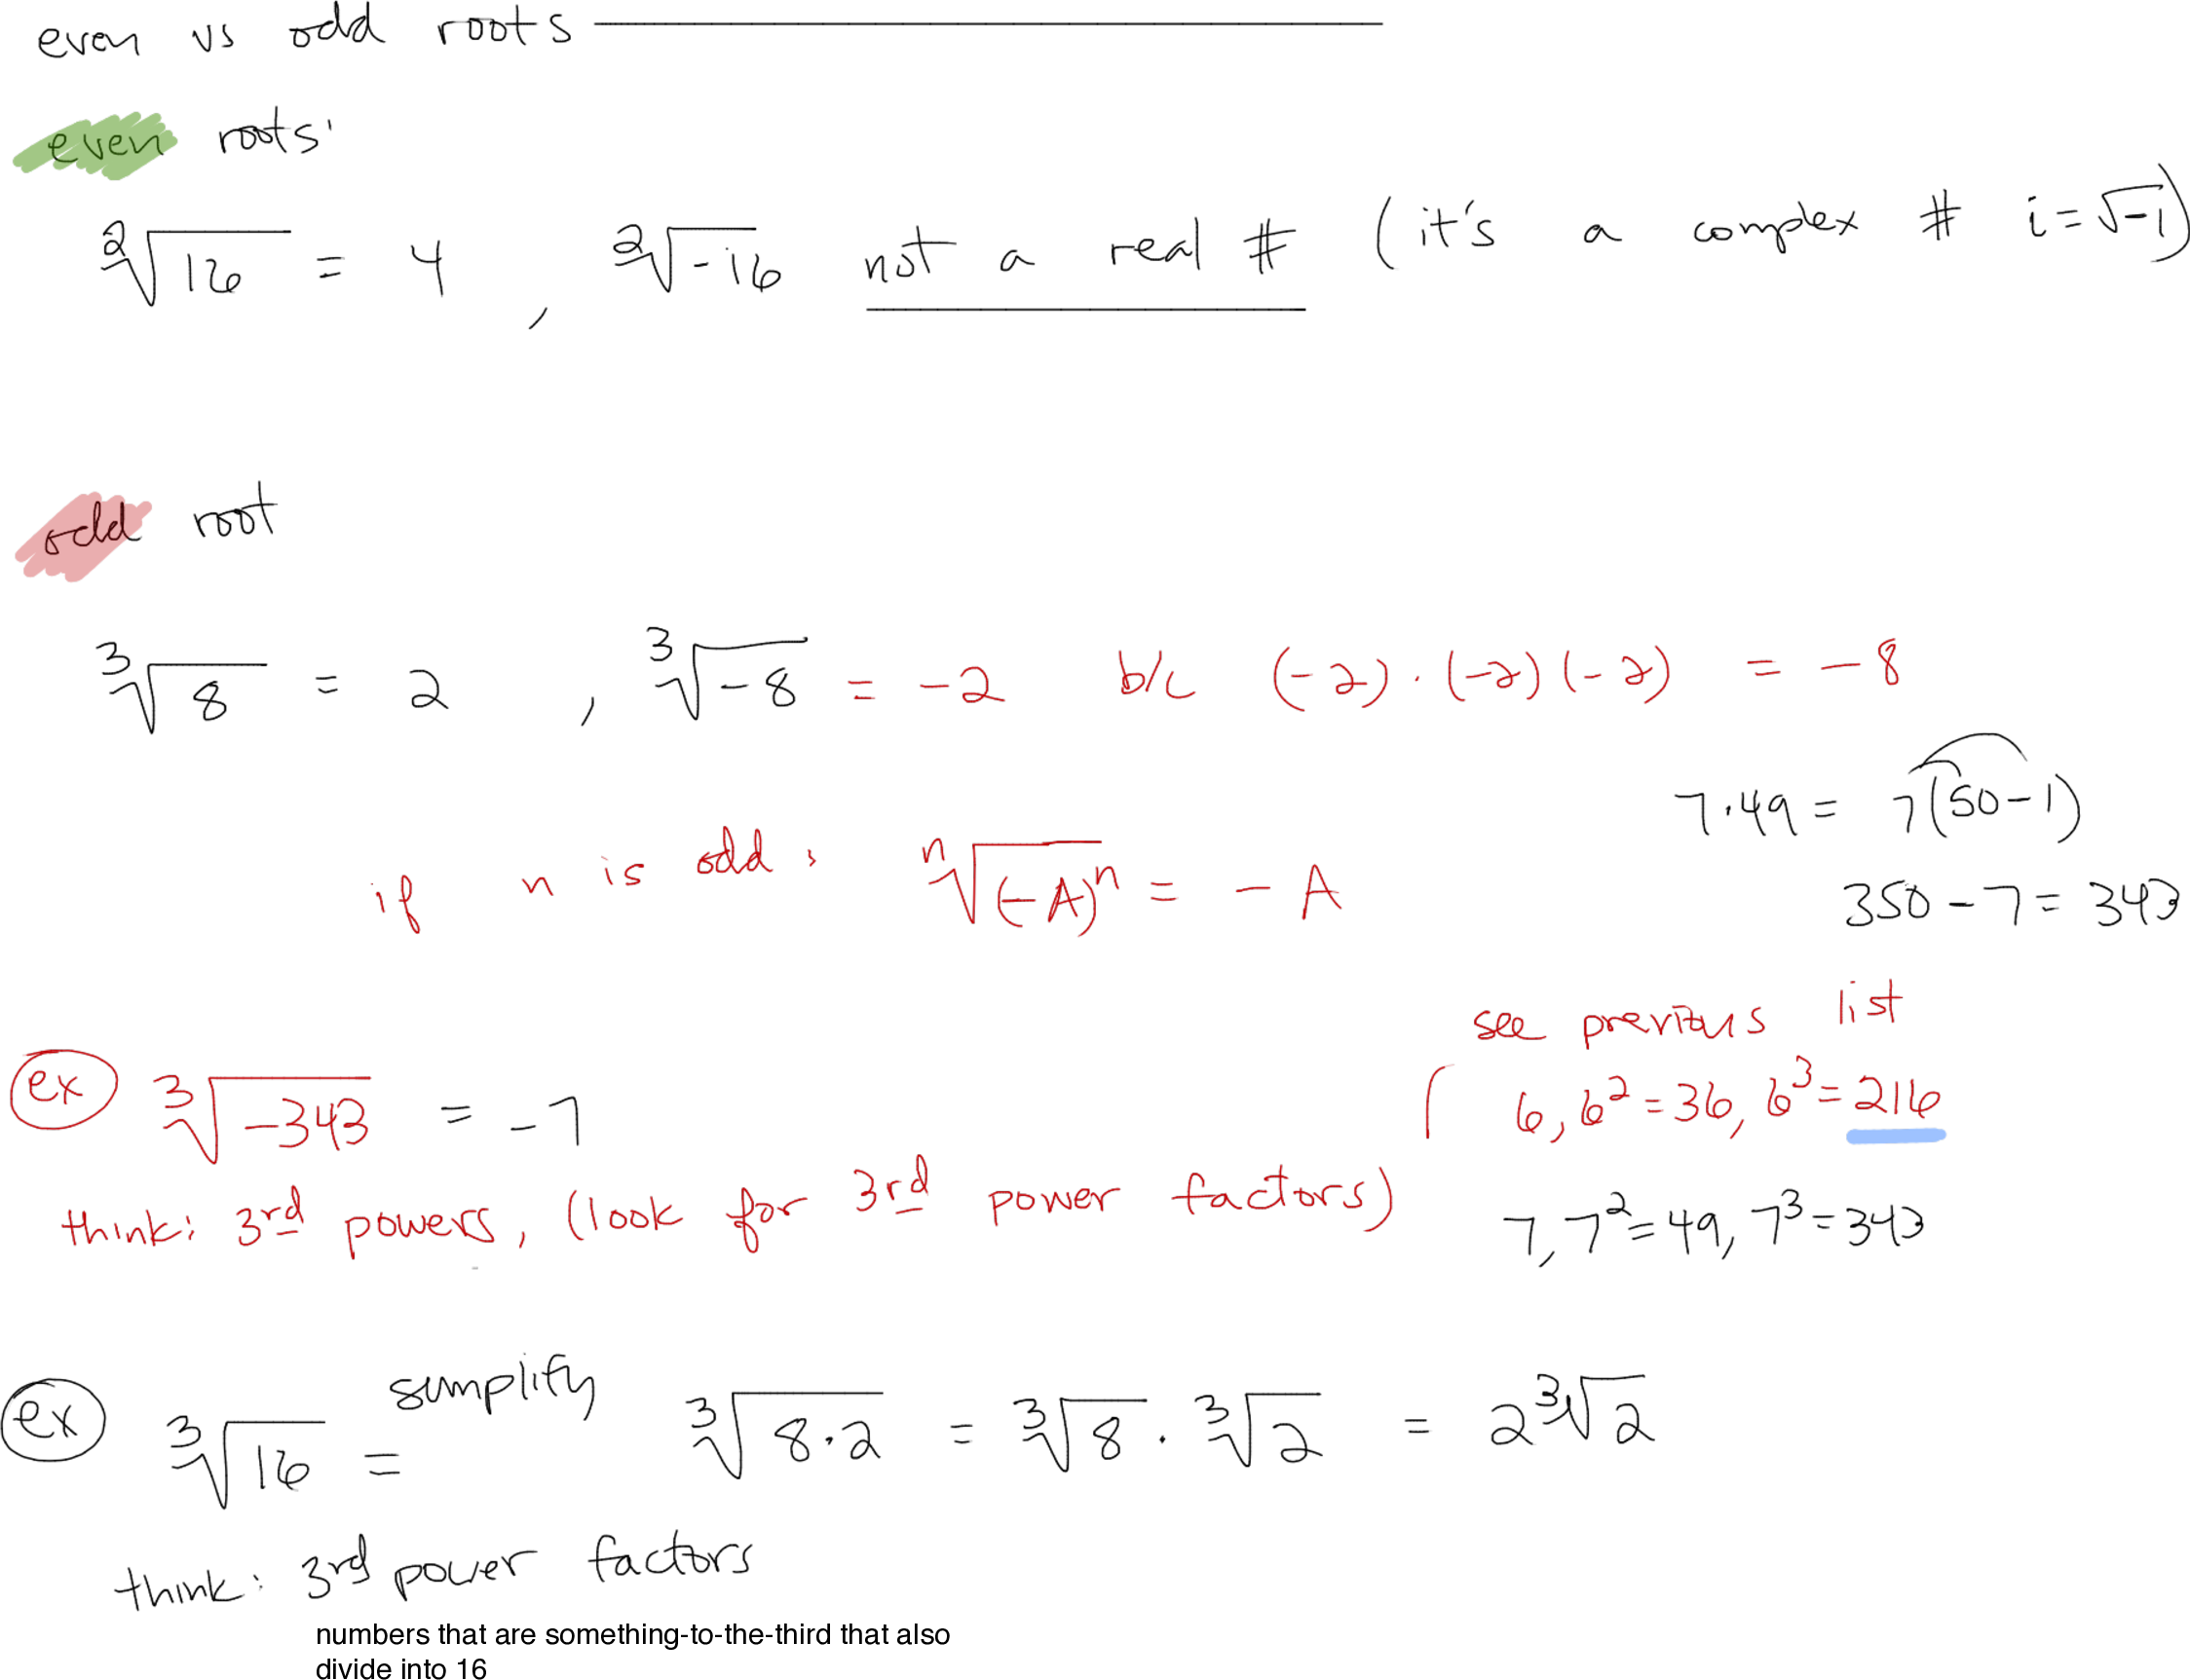 even vs odd roots
even roots:
²√16 = 4 , ²√-16 not a real # (it's a complex # i = √-1)
odd root
³√8 = 2 , ³√-8 = -2 b/c (-2)·(-2)(-2) = -8
7·49 = 7(50-1)
350-7 = 343
if n is odd, ⁿ√(-A)ⁿ = -A
see previous list
6, 6² = 36, 6³ = 216
ex ³√-343 = -7
think: 3rd powers, (look for 3rd power factors)
7, 7² = 49, 7³ = 343
ex ³√16 = simplify ³√8·2 = ³√8 · ³√2 = 2³√2
think: 3rd power factors
numbers that are something-to-the-third that also
divide into 16